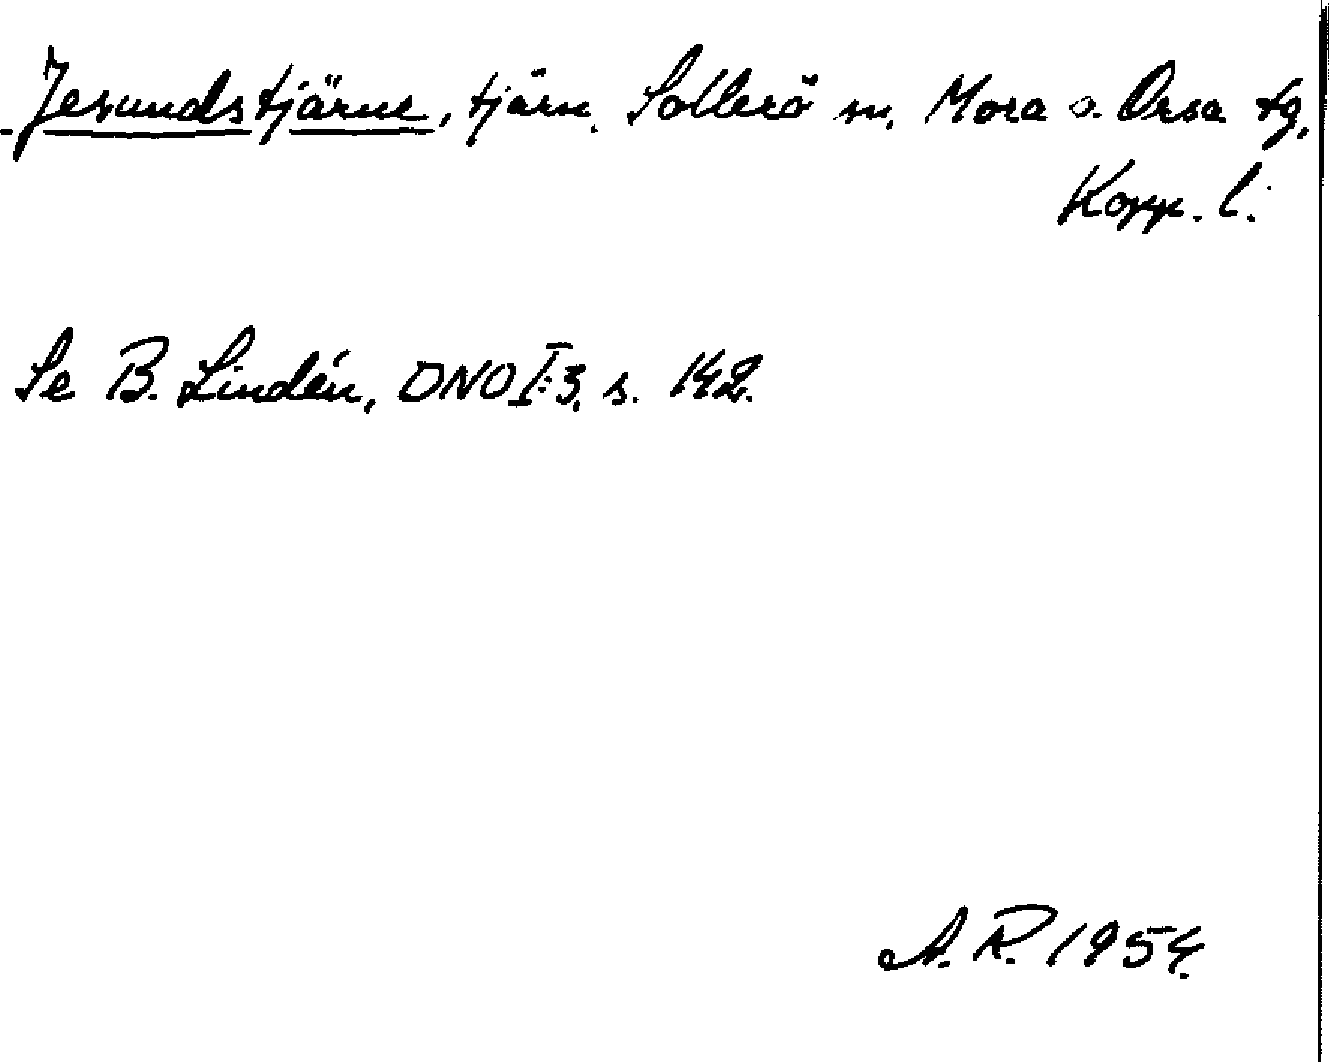 Jesundstjärne, tjärn. Sollerö sn. Mora o. Orsa tg.
Kopp. l.
Se B. Lindén, DNO I:3, s. 142.
A. R. 1954.